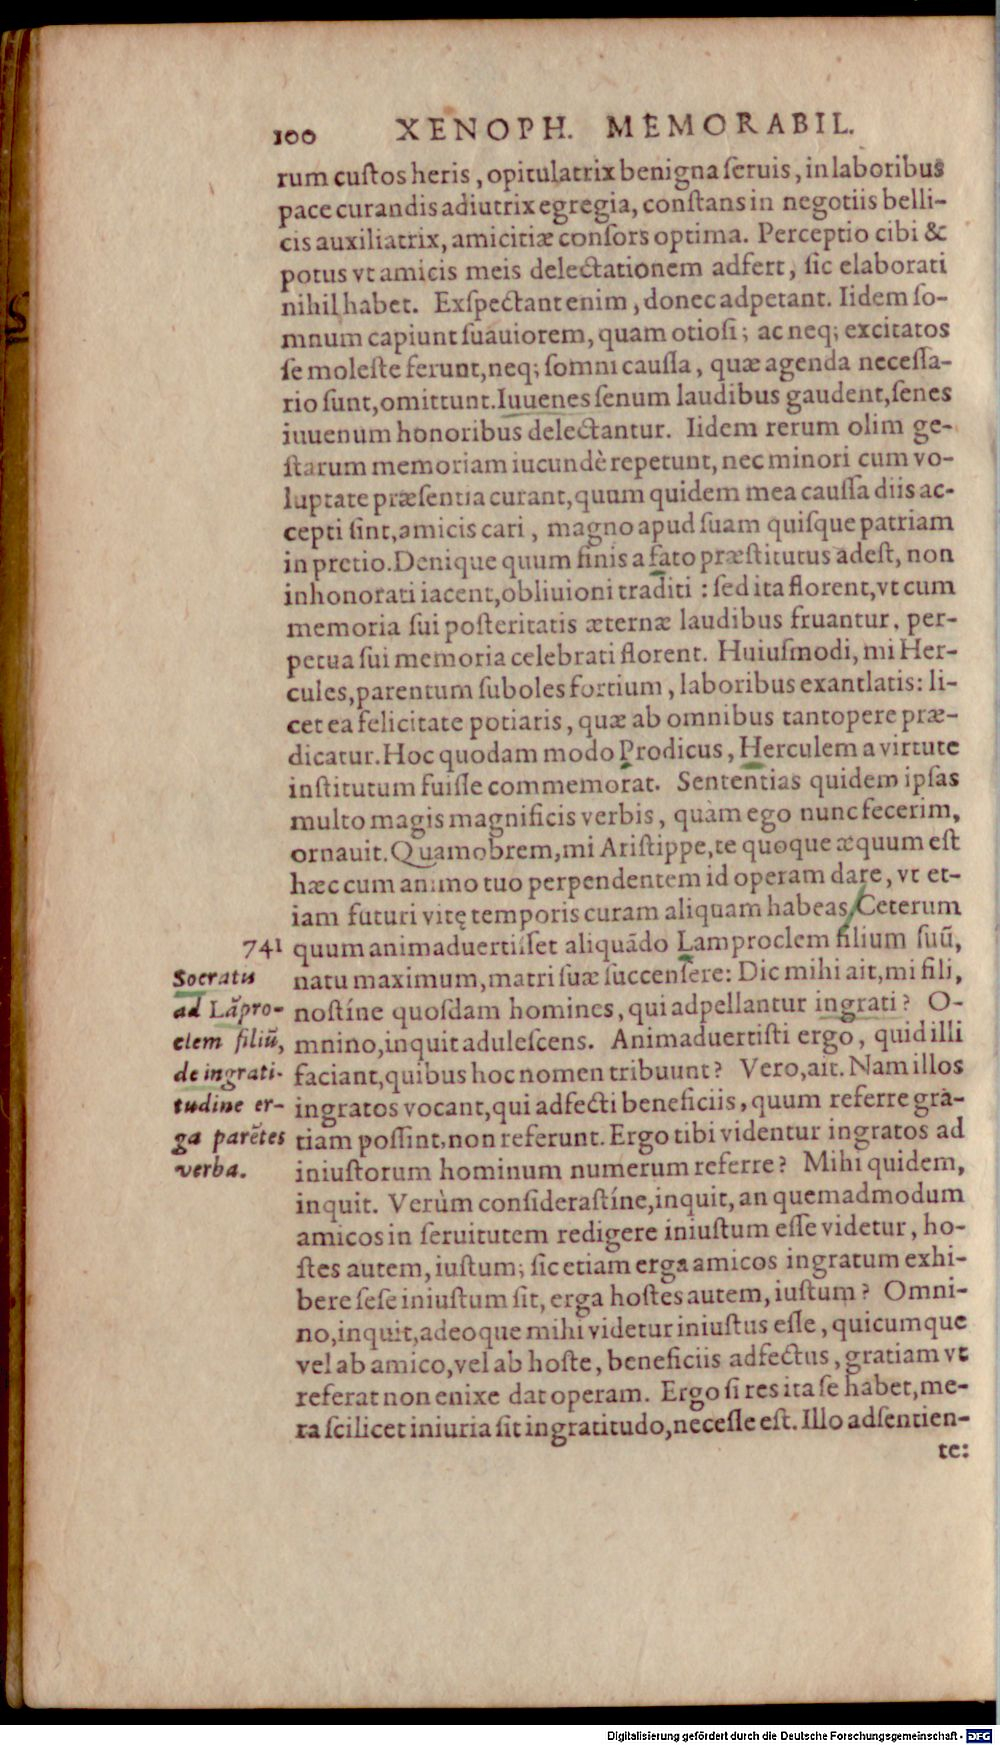 100 XENOPH. MEMORABIL.
rum cuſtos heris, opitulatrix benigna ſeruis, in laboribus
pace curandis adiutrix egregia, conſtans in negotiis belli-
cis auxiliatrix, amicitiæ conſors optima. Perceptio cibi &
potus vt amicis meis delectationem adfert, ſic elaborati
nihil habet. Exſpectant enim, donec adpetant. Iidem ſo-
mnum capiunt ſuauiorem, quam otioſi; ac neq; excitatos
ſe moleſte ferunt, neq; ſomni cauſſa, quæ agenda neceſſa-
rio ſunt, omittunt. Iuuenes ſenum laudibus gaudent, ſenes
iuuenum honoribus delectantur. Iidem rerum olim ge-
ſtarum memoriam iucundè repetunt, nec minori cum vo-
luptate præſentia curant, quum quidem mea cauſſa diis ac-
cepti ſint, amicis cari, magno apud ſuam quiſque patriam
in pretio. Denique quum finis a fato præſtitutus adeſt, non
inhonorati iacent, obliuioni traditi: ſed ita florent, vt cum
memoria ſui poſteritatis æternæ laudibus fruantur, per-
petua ſui memoria celebrati florent. Huiuſmodi, mi Her-
cules, parentum ſuboles fortium, laboribus exantlatis: li-
cet ea felicitate potiaris, quæ ab omnibus tantopere præ-
dicatur. Hoc quodam modo Prodicus, Herculem a virtute
inſtitutum fuiſſe commemorat. Sententias quidem ipſas
multo magis magnificis verbis, quàm ego nunc fecerim,
ornauit. Quamobrem, mi Ariſtippe, te quoque æquum eſt
hæc cum animo tuo perpendentem id operam dare, vt et-
iam futuri vitę temporis curam aliquam habeas. Ceterum
741 quum animaduertiſſet aliquādo Lamproclem filium ſuū,
natu maximum, matri ſuæ ſuccenſere: Dic mihi ait, mi fili,
noſtíne quoſdam homines, qui adpellantur ingrati? O-
mnino, inquit aduleſcens. Animaduertiſti ergo, quid illi
faciant, quibus hoc nomen tribuunt? Vero, ait. Nam illos
ingratos vocant, qui adfecti beneficiis, quum referre gra-
tiam poſſint, non referunt. Ergo tibi videntur ingratos ad
iniuſtorum hominum numerum referre? Mihi quidem,
inquit. Verùm conſideraſtíne, inquit, an quemadmodum
amicos in ſeruitutem redigere iniuſtum eſſe videtur, ho-
ſtes autem, iuſtum; ſic etiam erga amicos ingratum exhi-
bere ſeſe iniuſtum ſit, erga hoſtes autem, iuſtum? Omni-
no, inquit, adeoque mihi videtur iniuſtus eſſe, quicumque
vel ab amico, vel ab hoſte, beneficiis adfectus, gratiam vt
referat non enixe dat operam. Ergo ſi res ita ſe habet, me-
ra ſcilicet iniuria ſit ingratitudo, neceſſe eſt. Illo adſentien-
te:
Socratis
ad Lāpro-
clem filiū,
de ingrati-
tudine er-
ga parētes
verba.
Digitalisierung gefördert durch die Deutsche Forschungsgemeinschaft - DFG